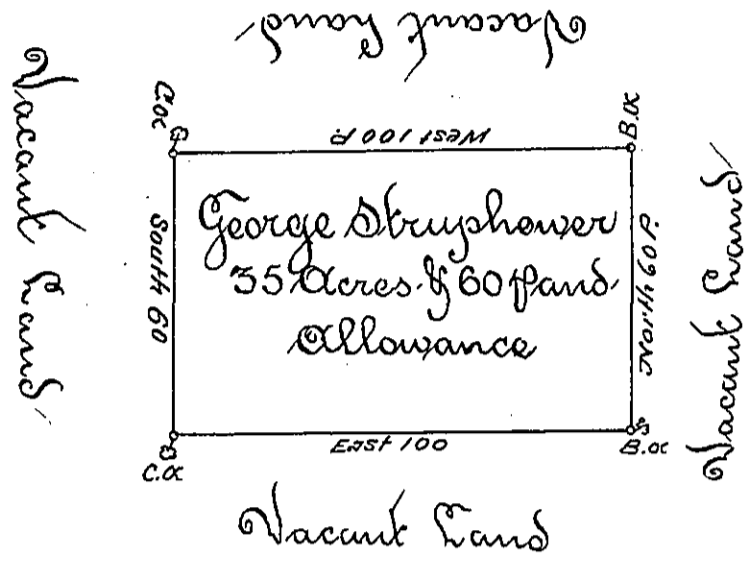 Vacant Land
C.OK
West 100 P.
B.OK
Vacant Land
South 60
George Struphower
35 Acres & 60 P and
Allowance
North 60 P.
Vacant Land
C.OK
East 100
B.OK
Vacant Land